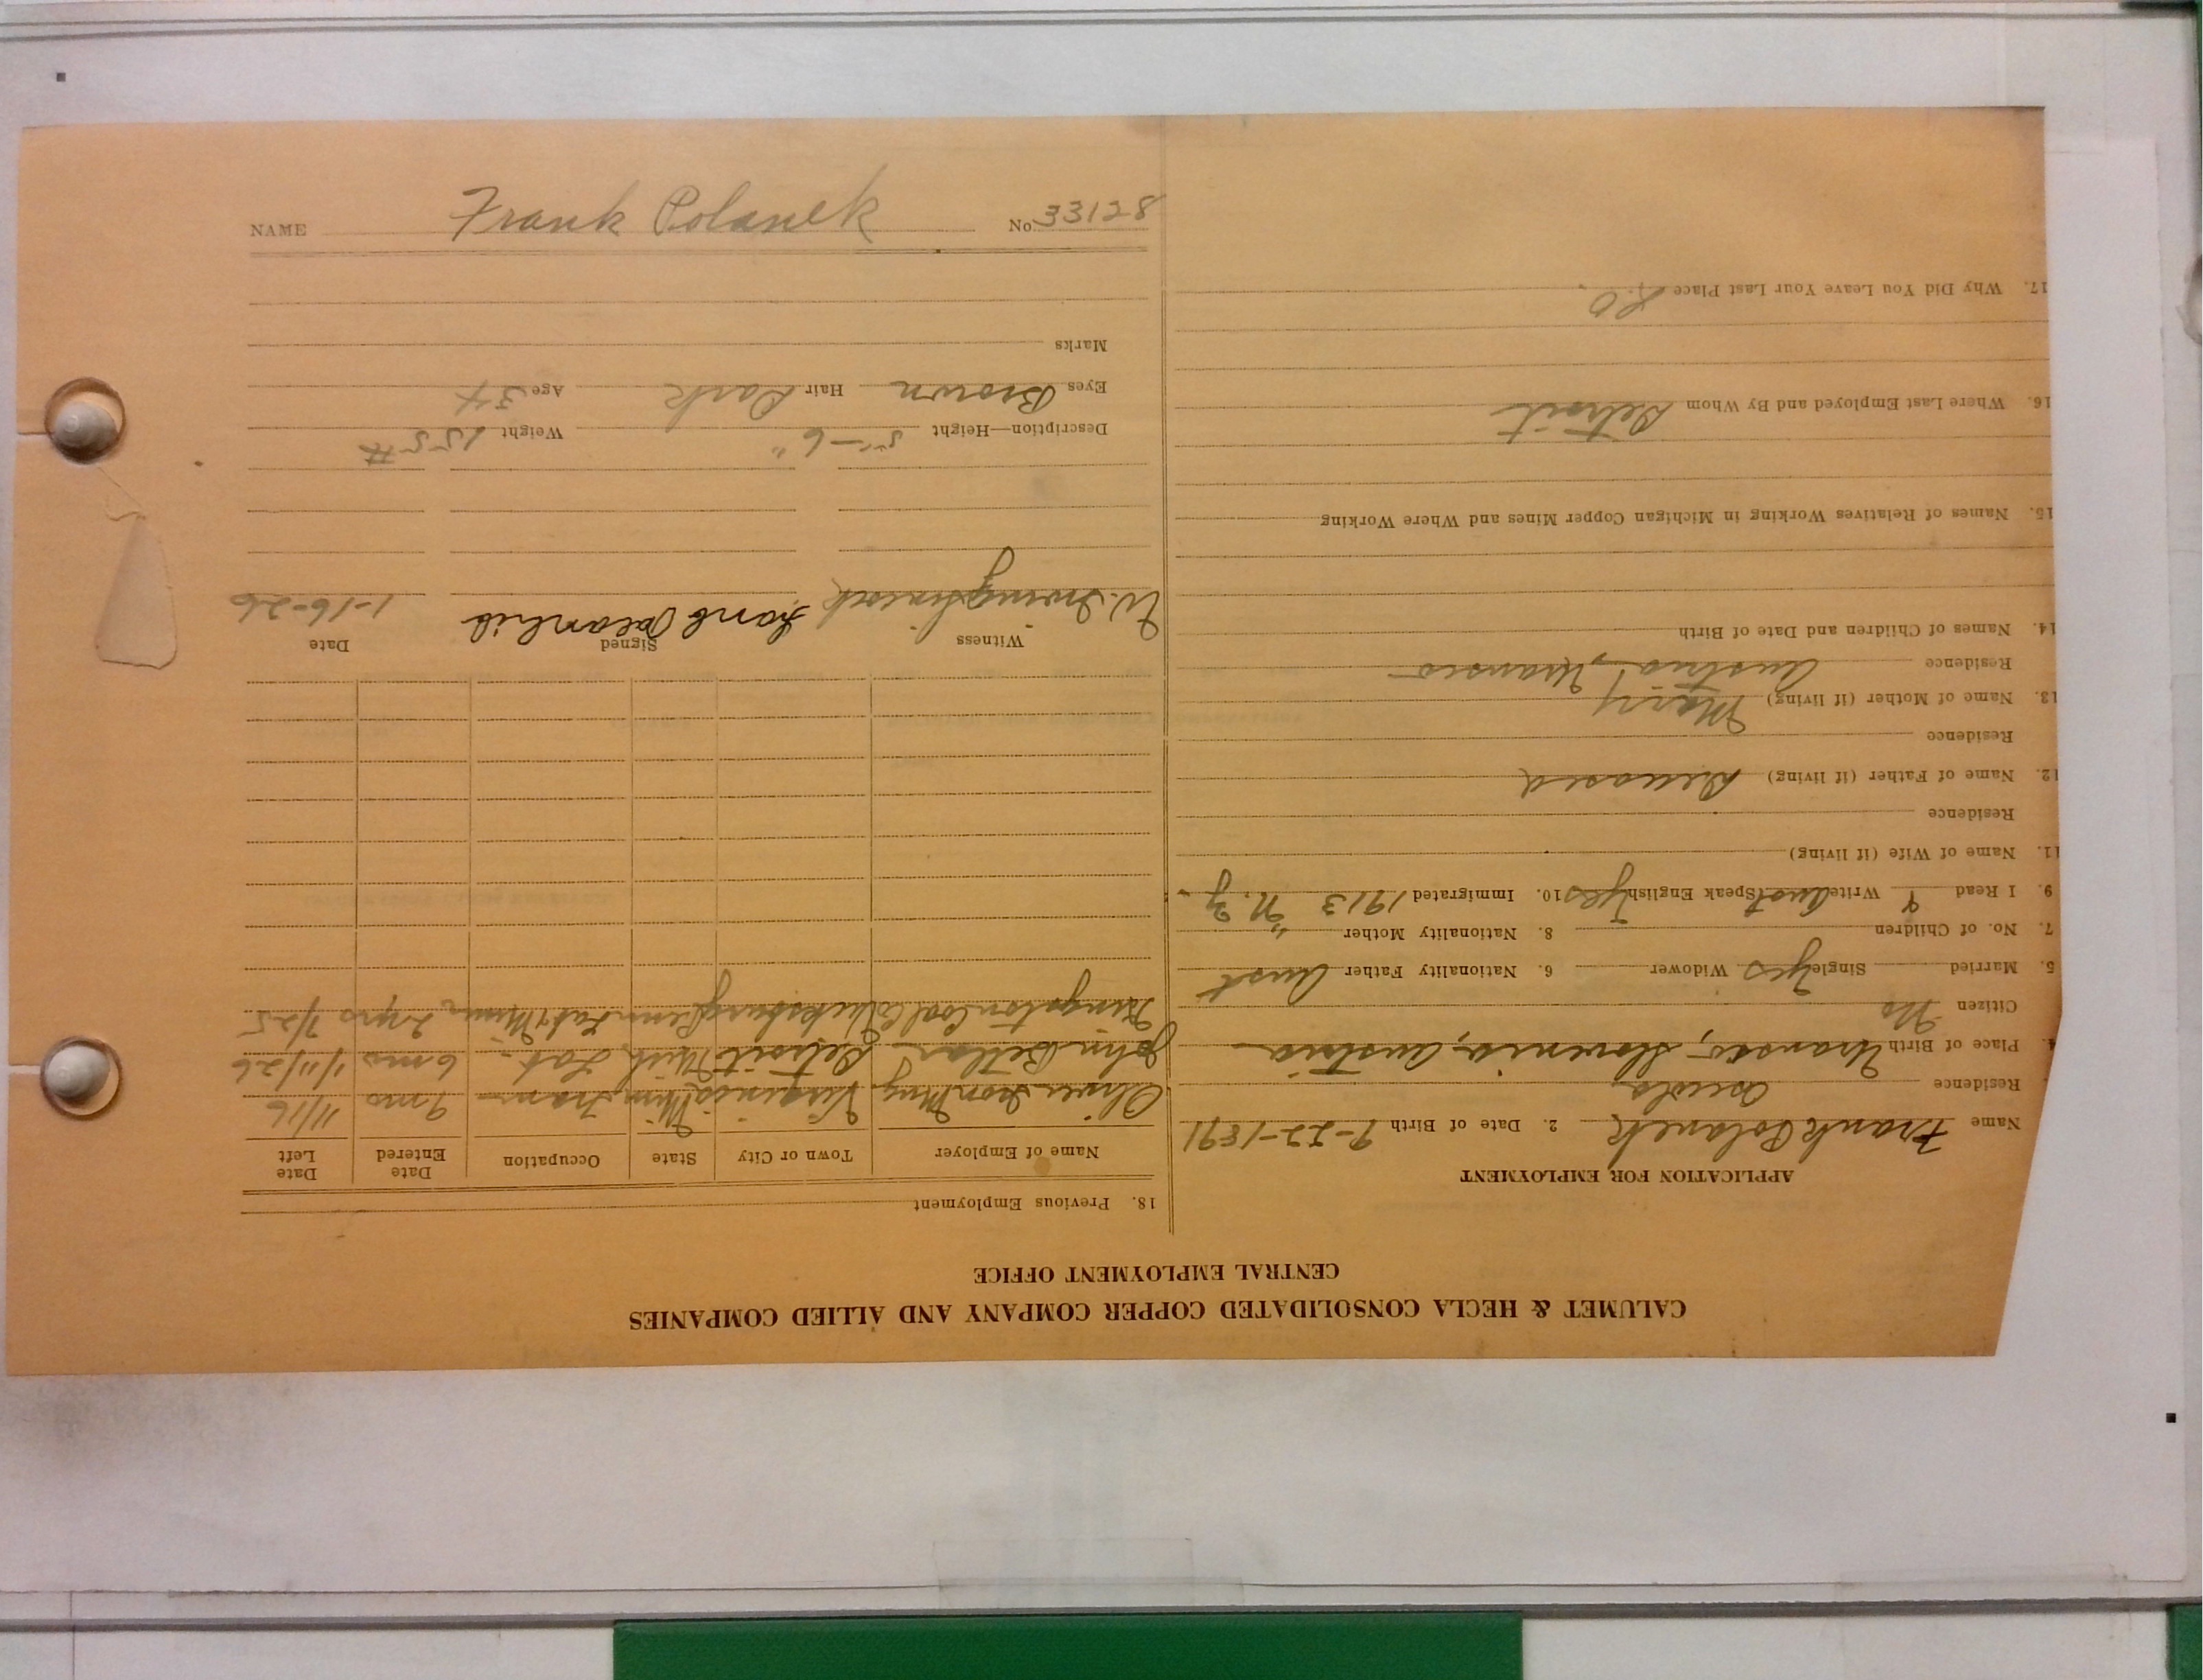 CALUMET & HECLA CONSOLIDATED COPPER COMPANY AND ALLIED COMPANIES
CENTRAL EMPLOYMENT OFFICE
APPLICATION FOR EMPLOYMENT
Name Frank Polanek 2. Date of Birth 9-22-1891
Residence Osceola
4. Place of Birth Slovenia, Austria
Citizen No
5. Married Single yes Widower 6. Nationality Father Aust
7. No. of Children 8. Nationality Mother "
9. I Read Write Aust Speak English yes 10. Immigrated 1913 N.Y.
11. Name of Wife (if living)
Residence
12. Name of Father (if living) Deceased
Residence
13. Name of Mother (if living) Mary
Residence Austria,
14. Names of Children and Date of Birth
15. Names of Relatives Working in Michigan Copper Mines and Where Working
16. Where Last Employed and By Whom Detroit
17. Why Did You Leave Your Last Place
18. Previous Employment
Name of Employer Town or City State Occupation Date Entered Date Left
Oliver Iron Mng Virginia Minn Tram 9 mo 11/16
John Detroit Mich. Lab. 6 mo 1/11/26
Coal Co Penn 2 yrs 7/25
Witness Signed Date
W. 1-16-26
Description—Height 5'-6" Weight 155#
Eyes Brown Hair Dark Age 34
Marks
NAME Frank Polanek No. 33128